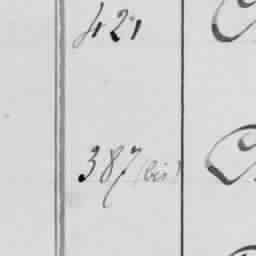 421
387 (bis)